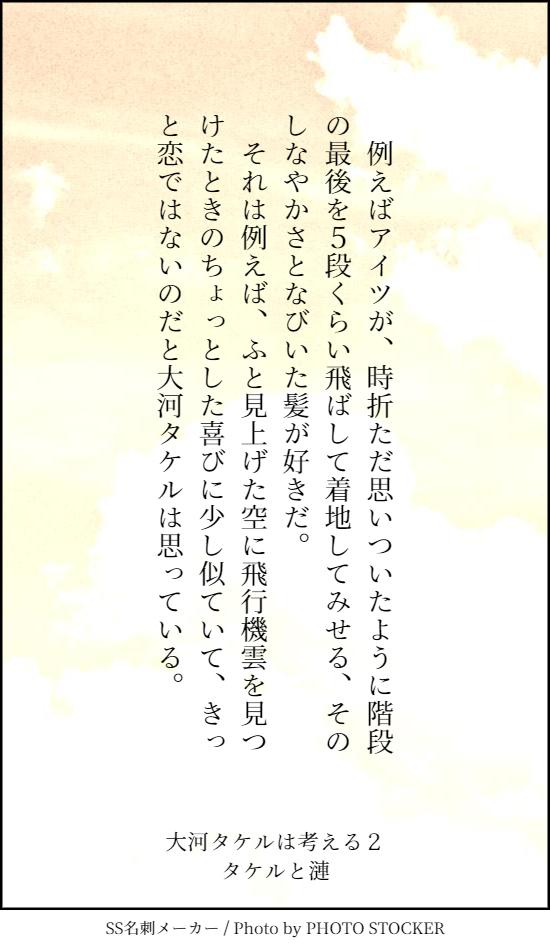 例えばアイツが、時折ただ思いついたように階段
の最後を５段くらい飛ばして着地してみせる、その
しなやかさとなびいた髪が好きだ。
　それは例えば、ふと見上げた空に飛行機雲を見つ
けたときのちょっとした喜びに少し似ていて、きっ
と恋ではないのだと大河タケルは思っている。
大河タケルは考える２
タケルと漣
SS名刺メーカー / Photo by PHOTO STOCKER